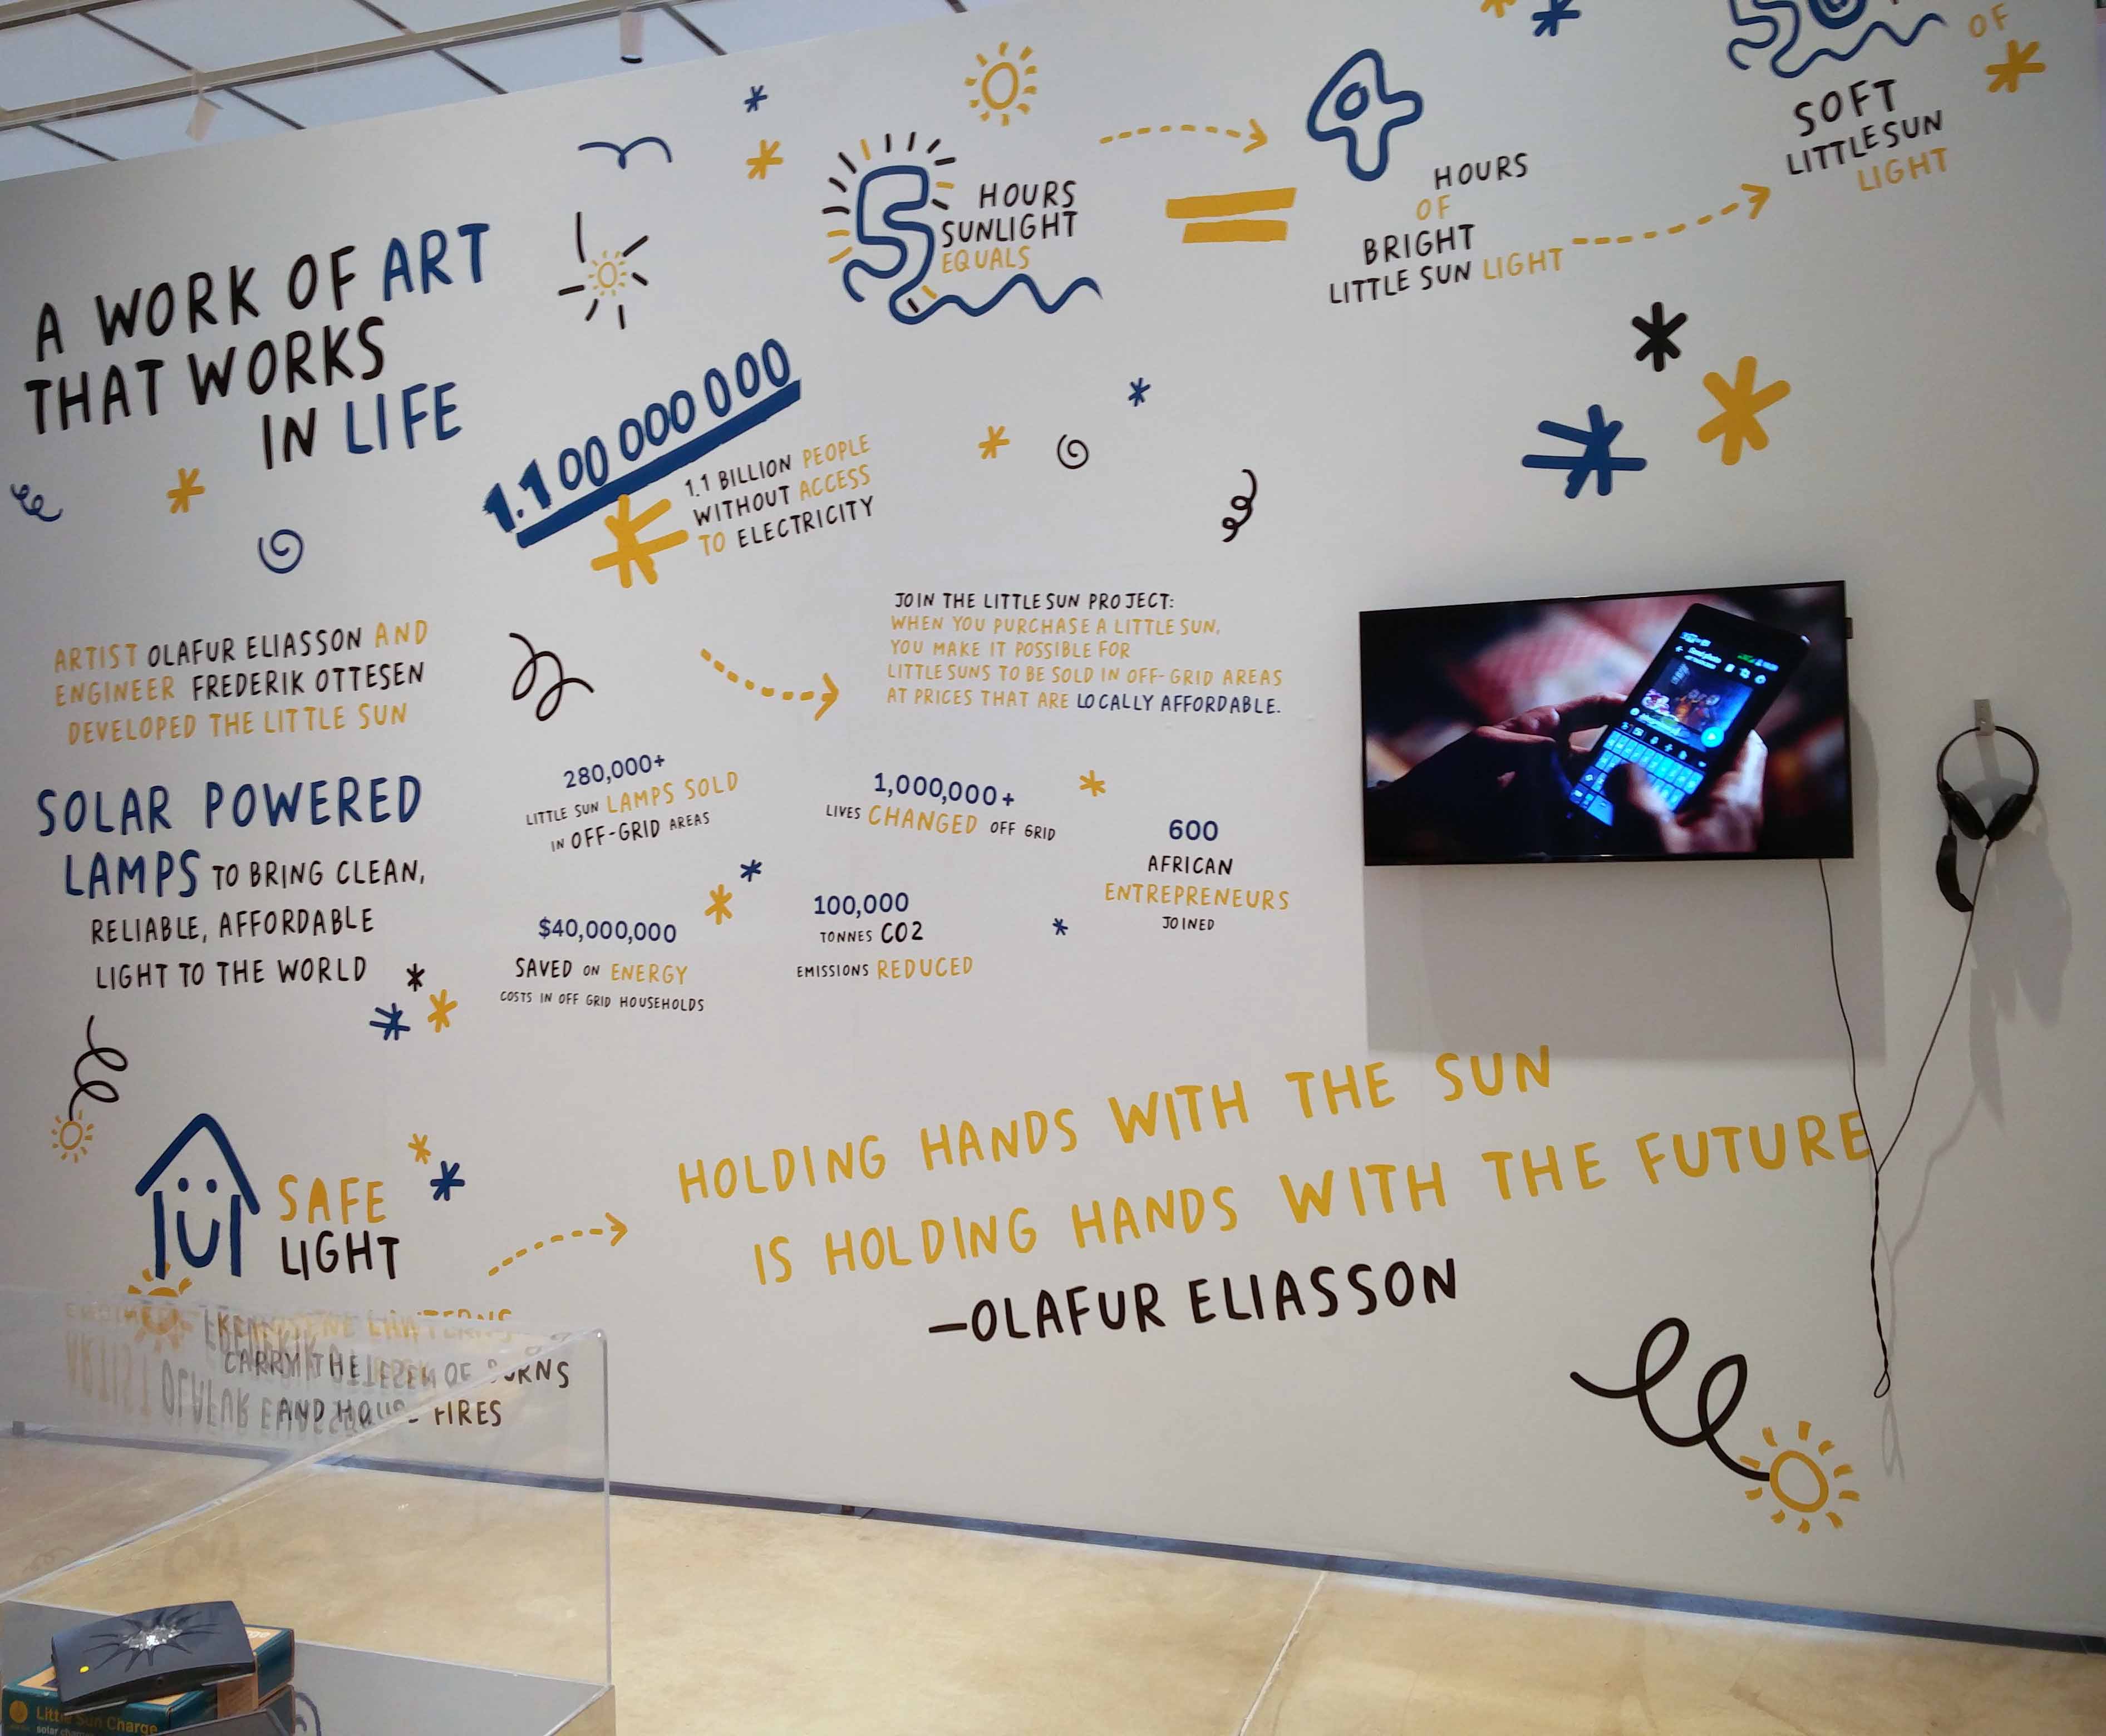 A WORK OF ART
THAT WORKS
IN LIFE
5 HOURS
SUNLIGHT
EQUALS
=
4
HOURS
OF
BRIGHT
LITTLE SUN LIGHT
OF
SOFT
LITTLE SUN
LIGHT
1.100 000 000
1.1 BILLION PEOPLE
WITHOUT ACCESS
TO ELECTRICITY
ARTIST OLAFUR ELIASSON AND
ENGINEER FREDERIK OTTESEN
DEVELOPED THE LITTLE SUN
SOLAR POWERED
LAMPS TO BRING CLEAN,
RELIABLE, AFFORDABLE
LIGHT TO THE WORLD
JOIN THE LITTLE SUN PROJECT:
WHEN YOU PURCHASE A LITTLE SUN,
YOU MAKE IT POSSIBLE FOR
LITTLE SUNS TO BE SOLD IN OFF-GRID AREAS
AT PRICES THAT ARE LOCALLY AFFORDABLE.
280,000+
LITTLE SUN LAMPS SOLD
IN OFF-GRID AREAS
1,000,000+
LIVES CHANGED OFF GRID
600
AFRICAN
ENTREPRENEURS
JOINED
$40,000,000
SAVED ON ENERGY
COSTS IN OFF GRID HOUSEHOLDS
100,000
TONNES CO2
EMISSIONS REDUCED
SAFE
LIGHT
KEROSENE LANTERNS
CARRY THE OF BURNS
AND HOUSE FIRES
HOLDING HANDS WITH THE SUN
IS HOLDING HANDS WITH THE FUTURE
—OLAFUR ELIASSON
Little Sun Charge
solar